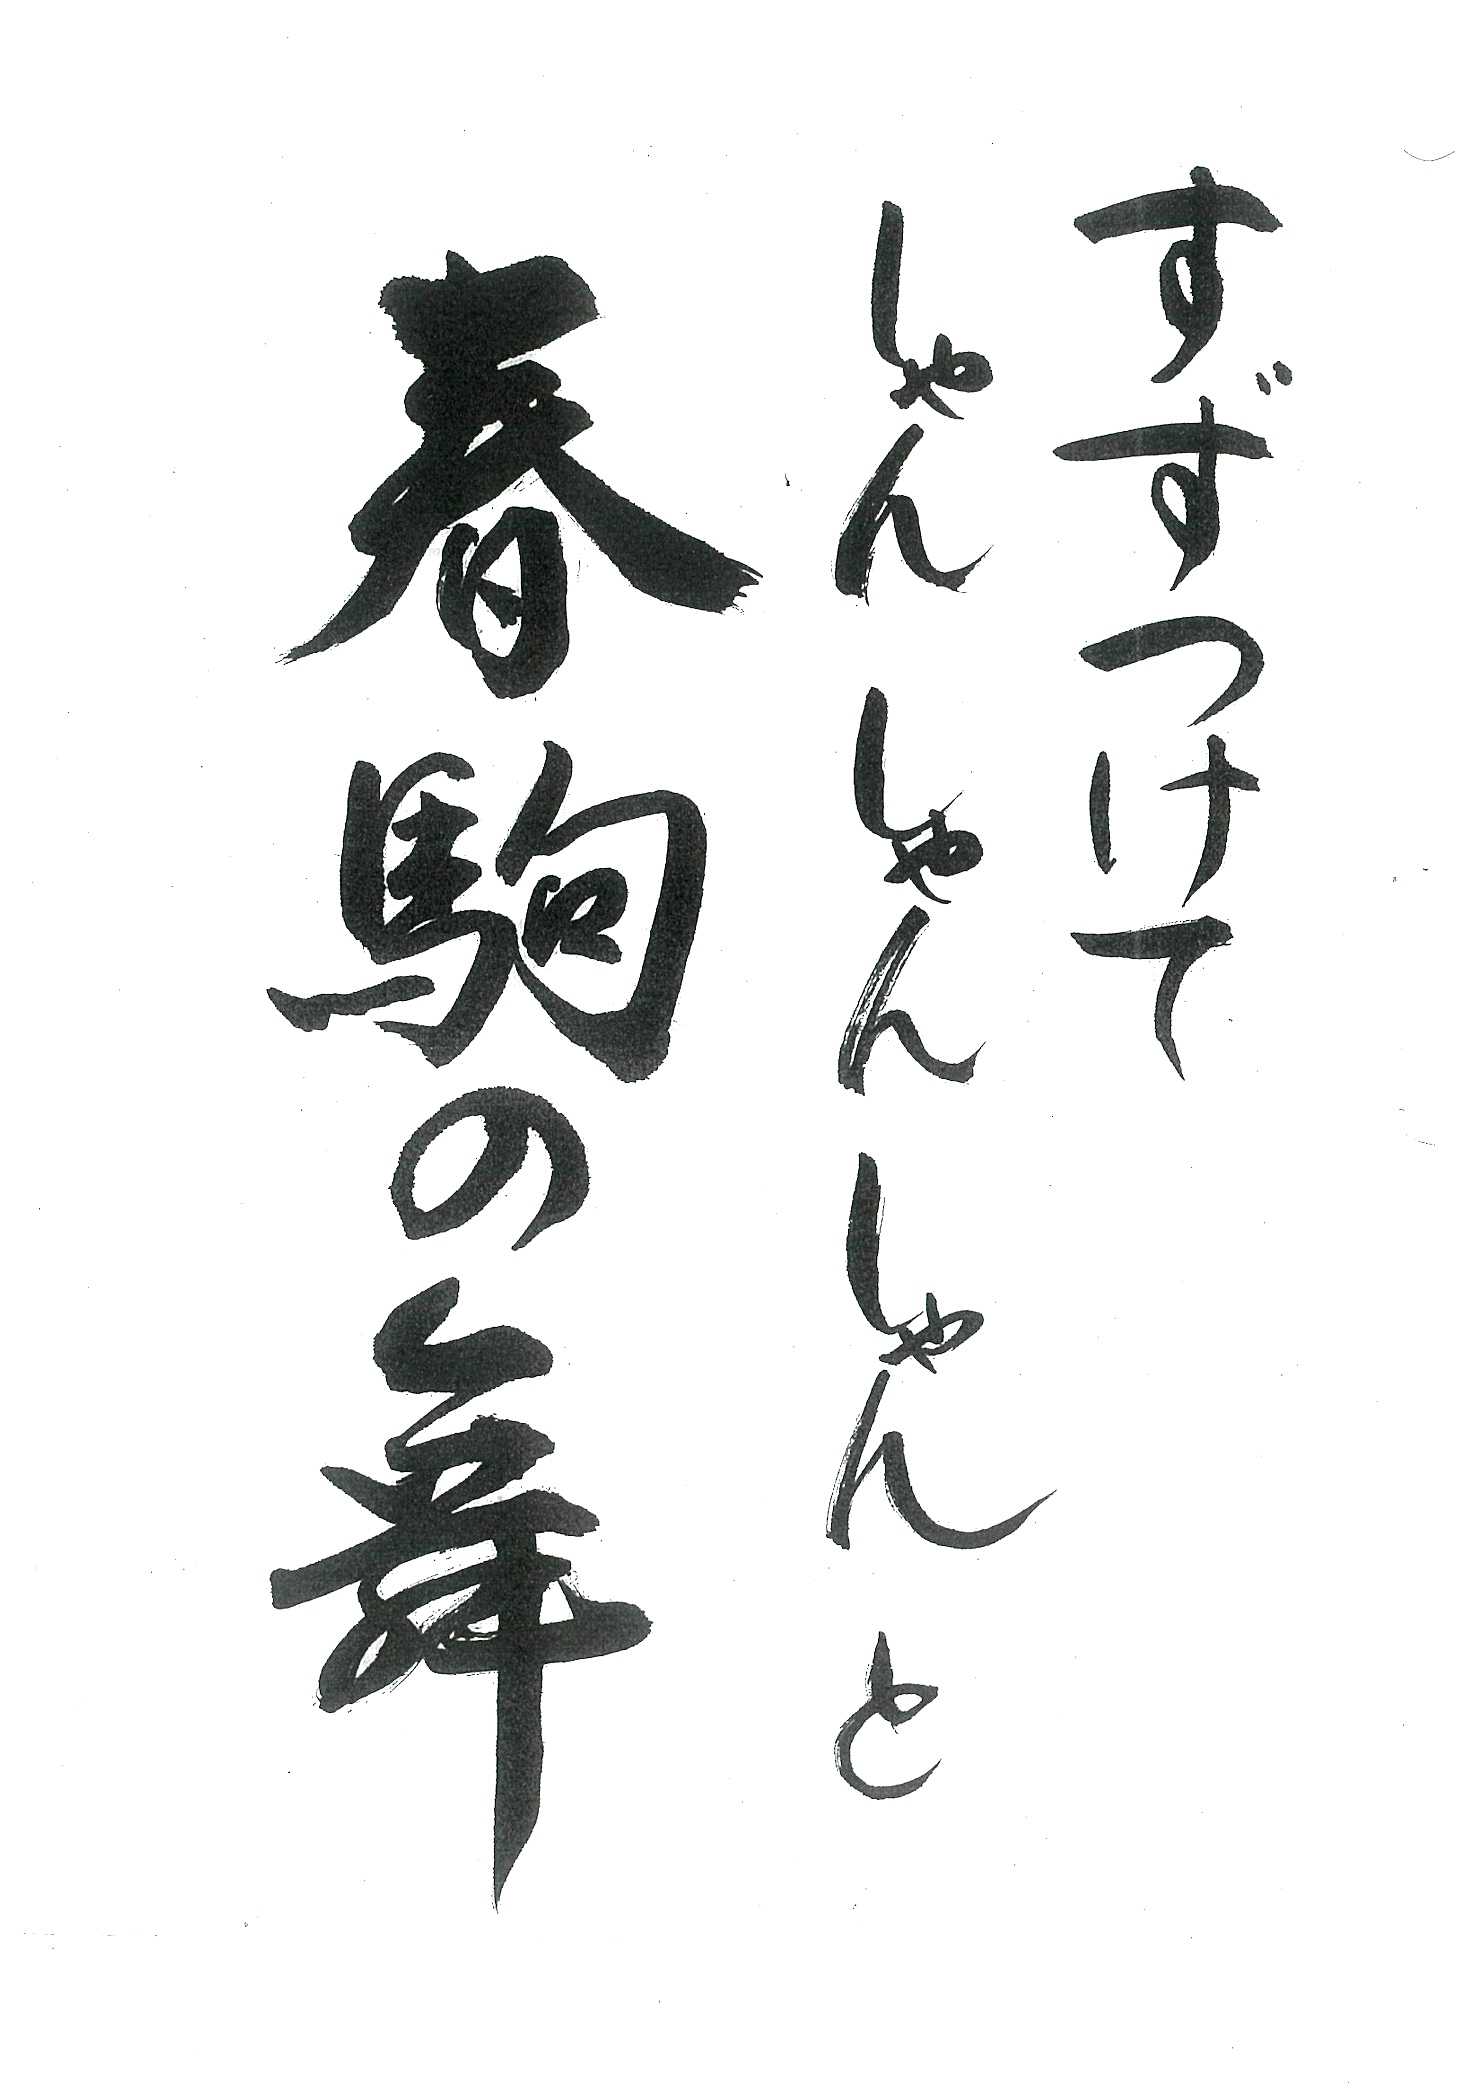 すずつけて
しゃんしゃんしゃんと
春駒の舞